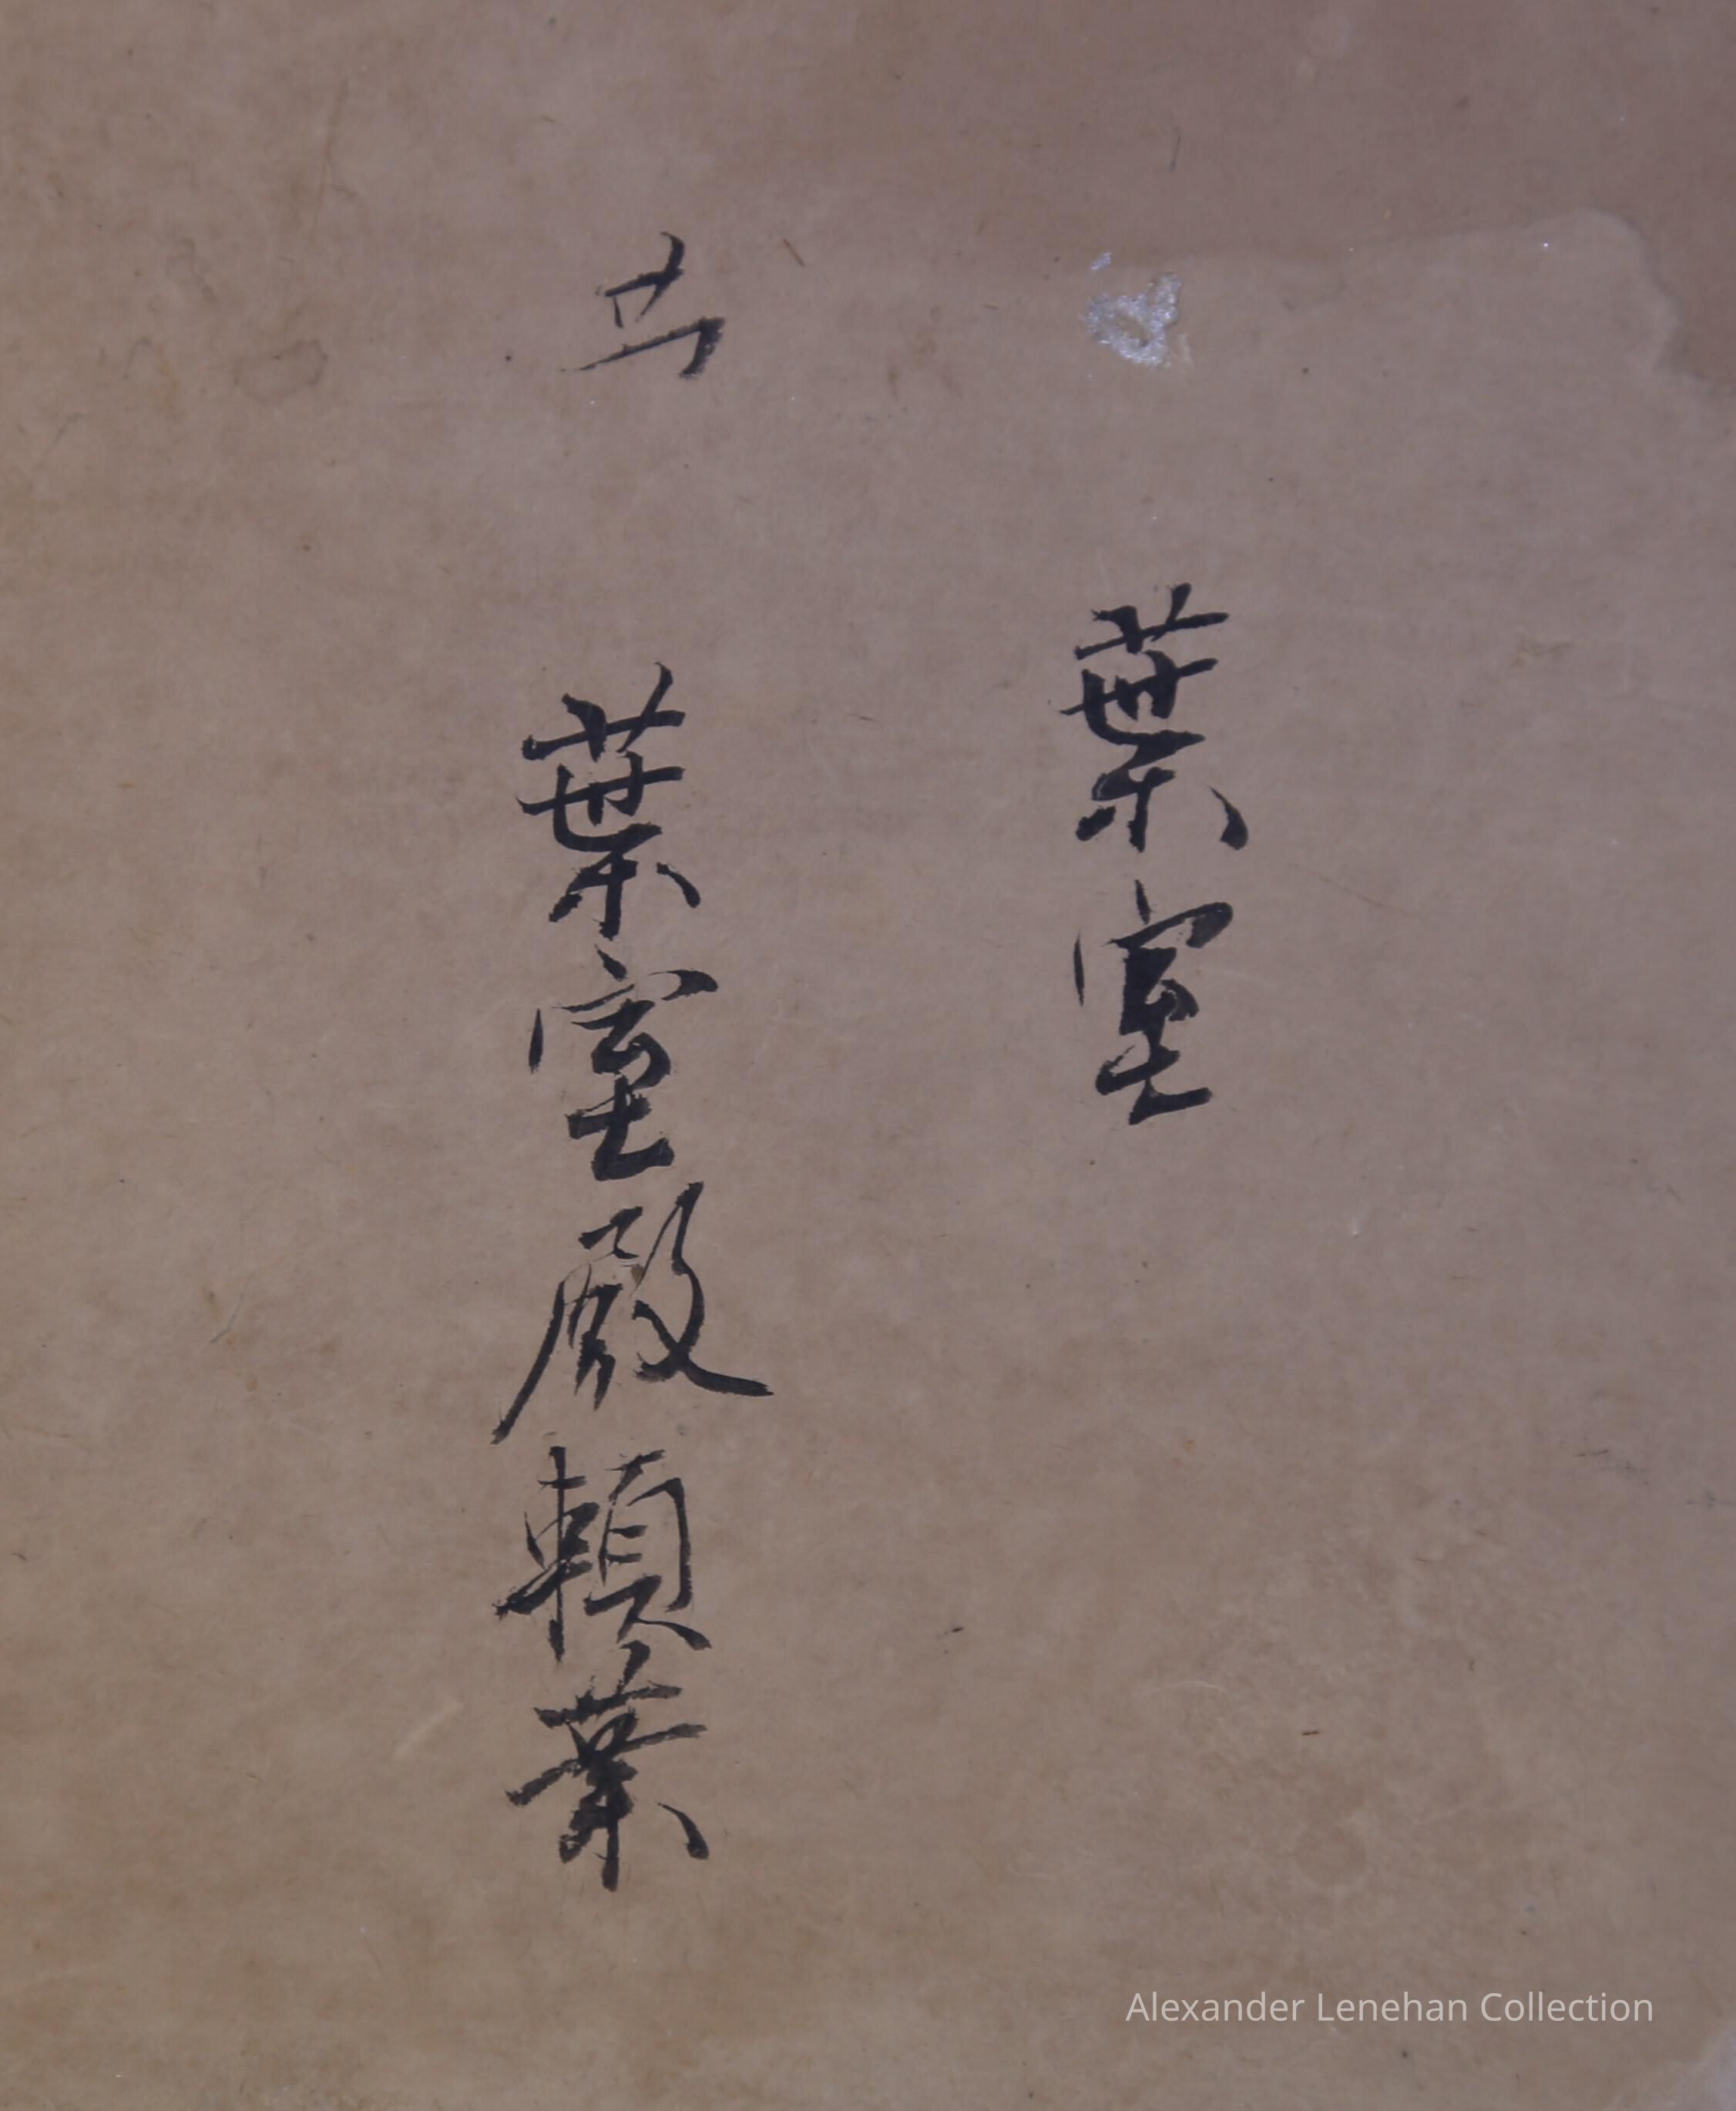 葉室
五
葉室殿頼業
Alexander Lenehan Collection